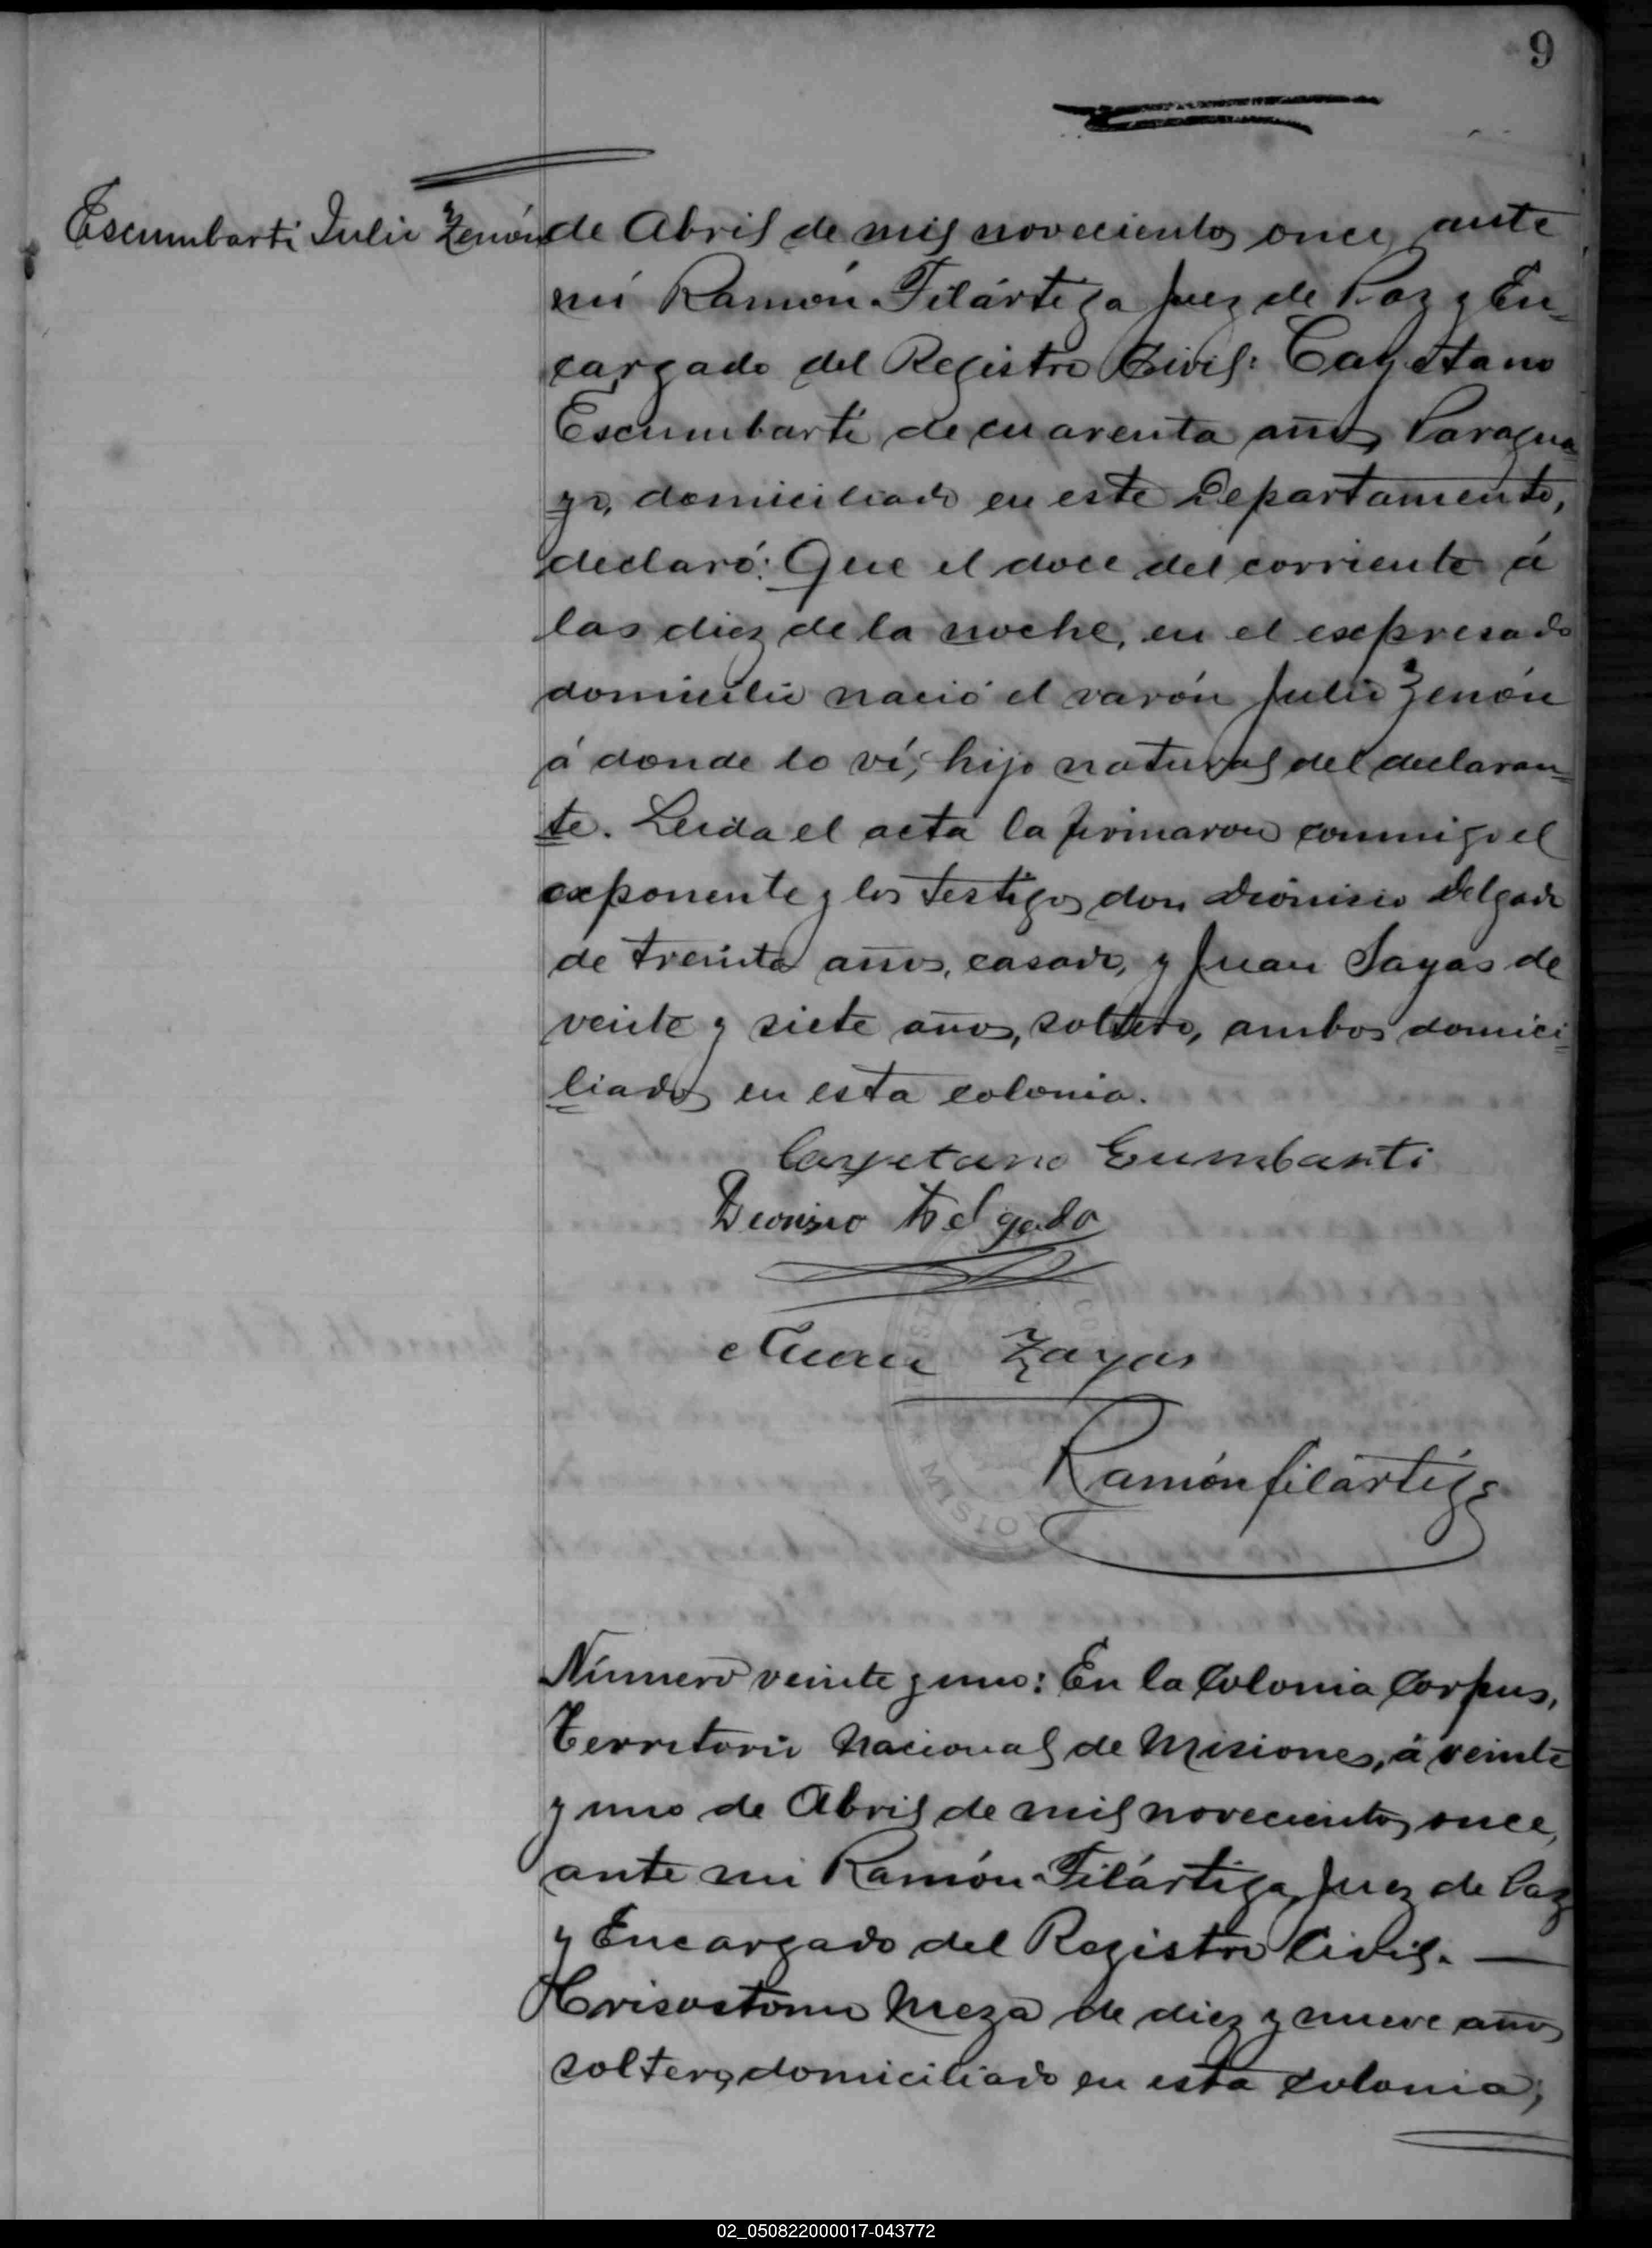 9
Escumbarti Julio Zenón
de Abril de mil novecientos once, ante
mí Ramón Filártiga Juez de Paz y En-
cargado del Registro Civil: Cayetano
Escumbarti de cuarenta años, Paragua-
yo, domiciliado en este Departamento,
declaró: Que el doce del corriente á
las diez de la noche, en el expresado
domicilio nació el varón Julio Zenón
á donde lo ví; hijo natural del declaran-
te. Leida el acta la firmaron conmigo el
exponente y los testigos don Dionisio Delgado
de treinta años, casado, y Juan Sayas de
veinte y siete años, soltero, ambos domici-
liados en esta colonia.
Cayetano Eumbarti
Dionisio Delgado
Juan Zayas
Ramón Filártiga
MISION
Número veinte y uno: En la Colonia Corpus,
Territorio Nacional de Misiones, á veinte
y uno de Abril de mil novecientos once,
ante mi Ramón Filártiga, Juez de Paz
y Encargado del Registro Civil. —
Crisostomo Meza de diez y nueve años
soltero, domiciliado en esta colonia;
02_050822000017-043772